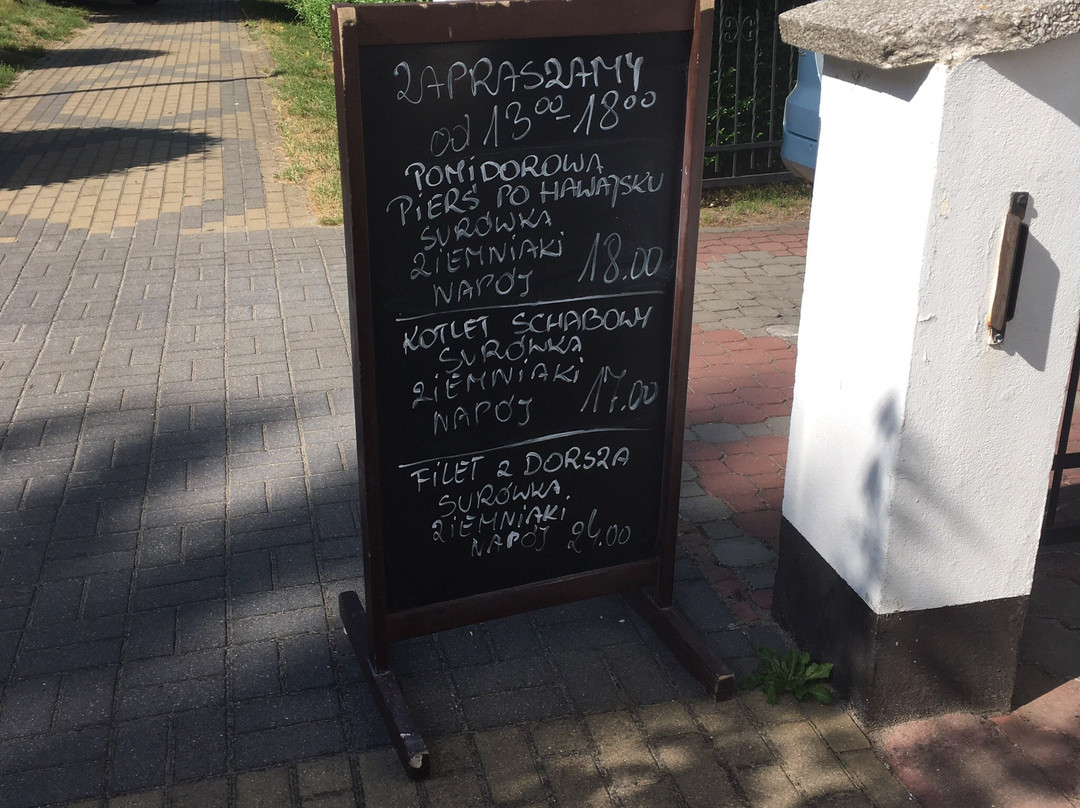 ZAPRASZAMY
od 13⁰⁰-18⁰⁰
POMIDOROWA
PIERŚ PO HAWAJSKU
SURÓWKA
ZIEMNIAKI
NAPÓJ 18.00
KOTLET SCHABOWY
SURÓWKA
ZIEMNIAKI
NAPÓJ 17.00
FILET Z DORSZA
SURÓWKA
ZIEMNIAKI
NAPÓJ 24.00